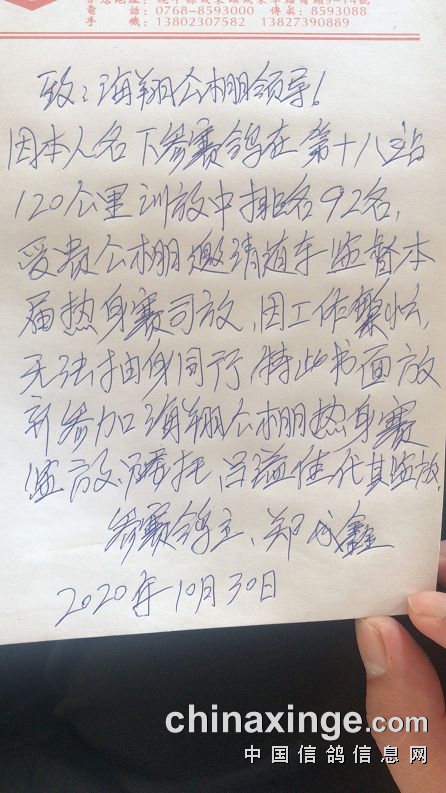 電 話：0768-8593000 傳真：8593088
手 機：13802307582 13827390889
致：海翔公棚领导！
因本人名下参赛鸽在第十八站
120公里训放中排名92名，
受贵公棚邀请随车监督本
届热身赛司放，因工作繁忙，
无法抽身同行，特此书面放
弃参加海翔公棚热身赛
监放，委托 吕溢佳代其监放，
参赛鸽主：郑 鑫
2020年10月30日
chinaxinge.com
中国信鸽信息网